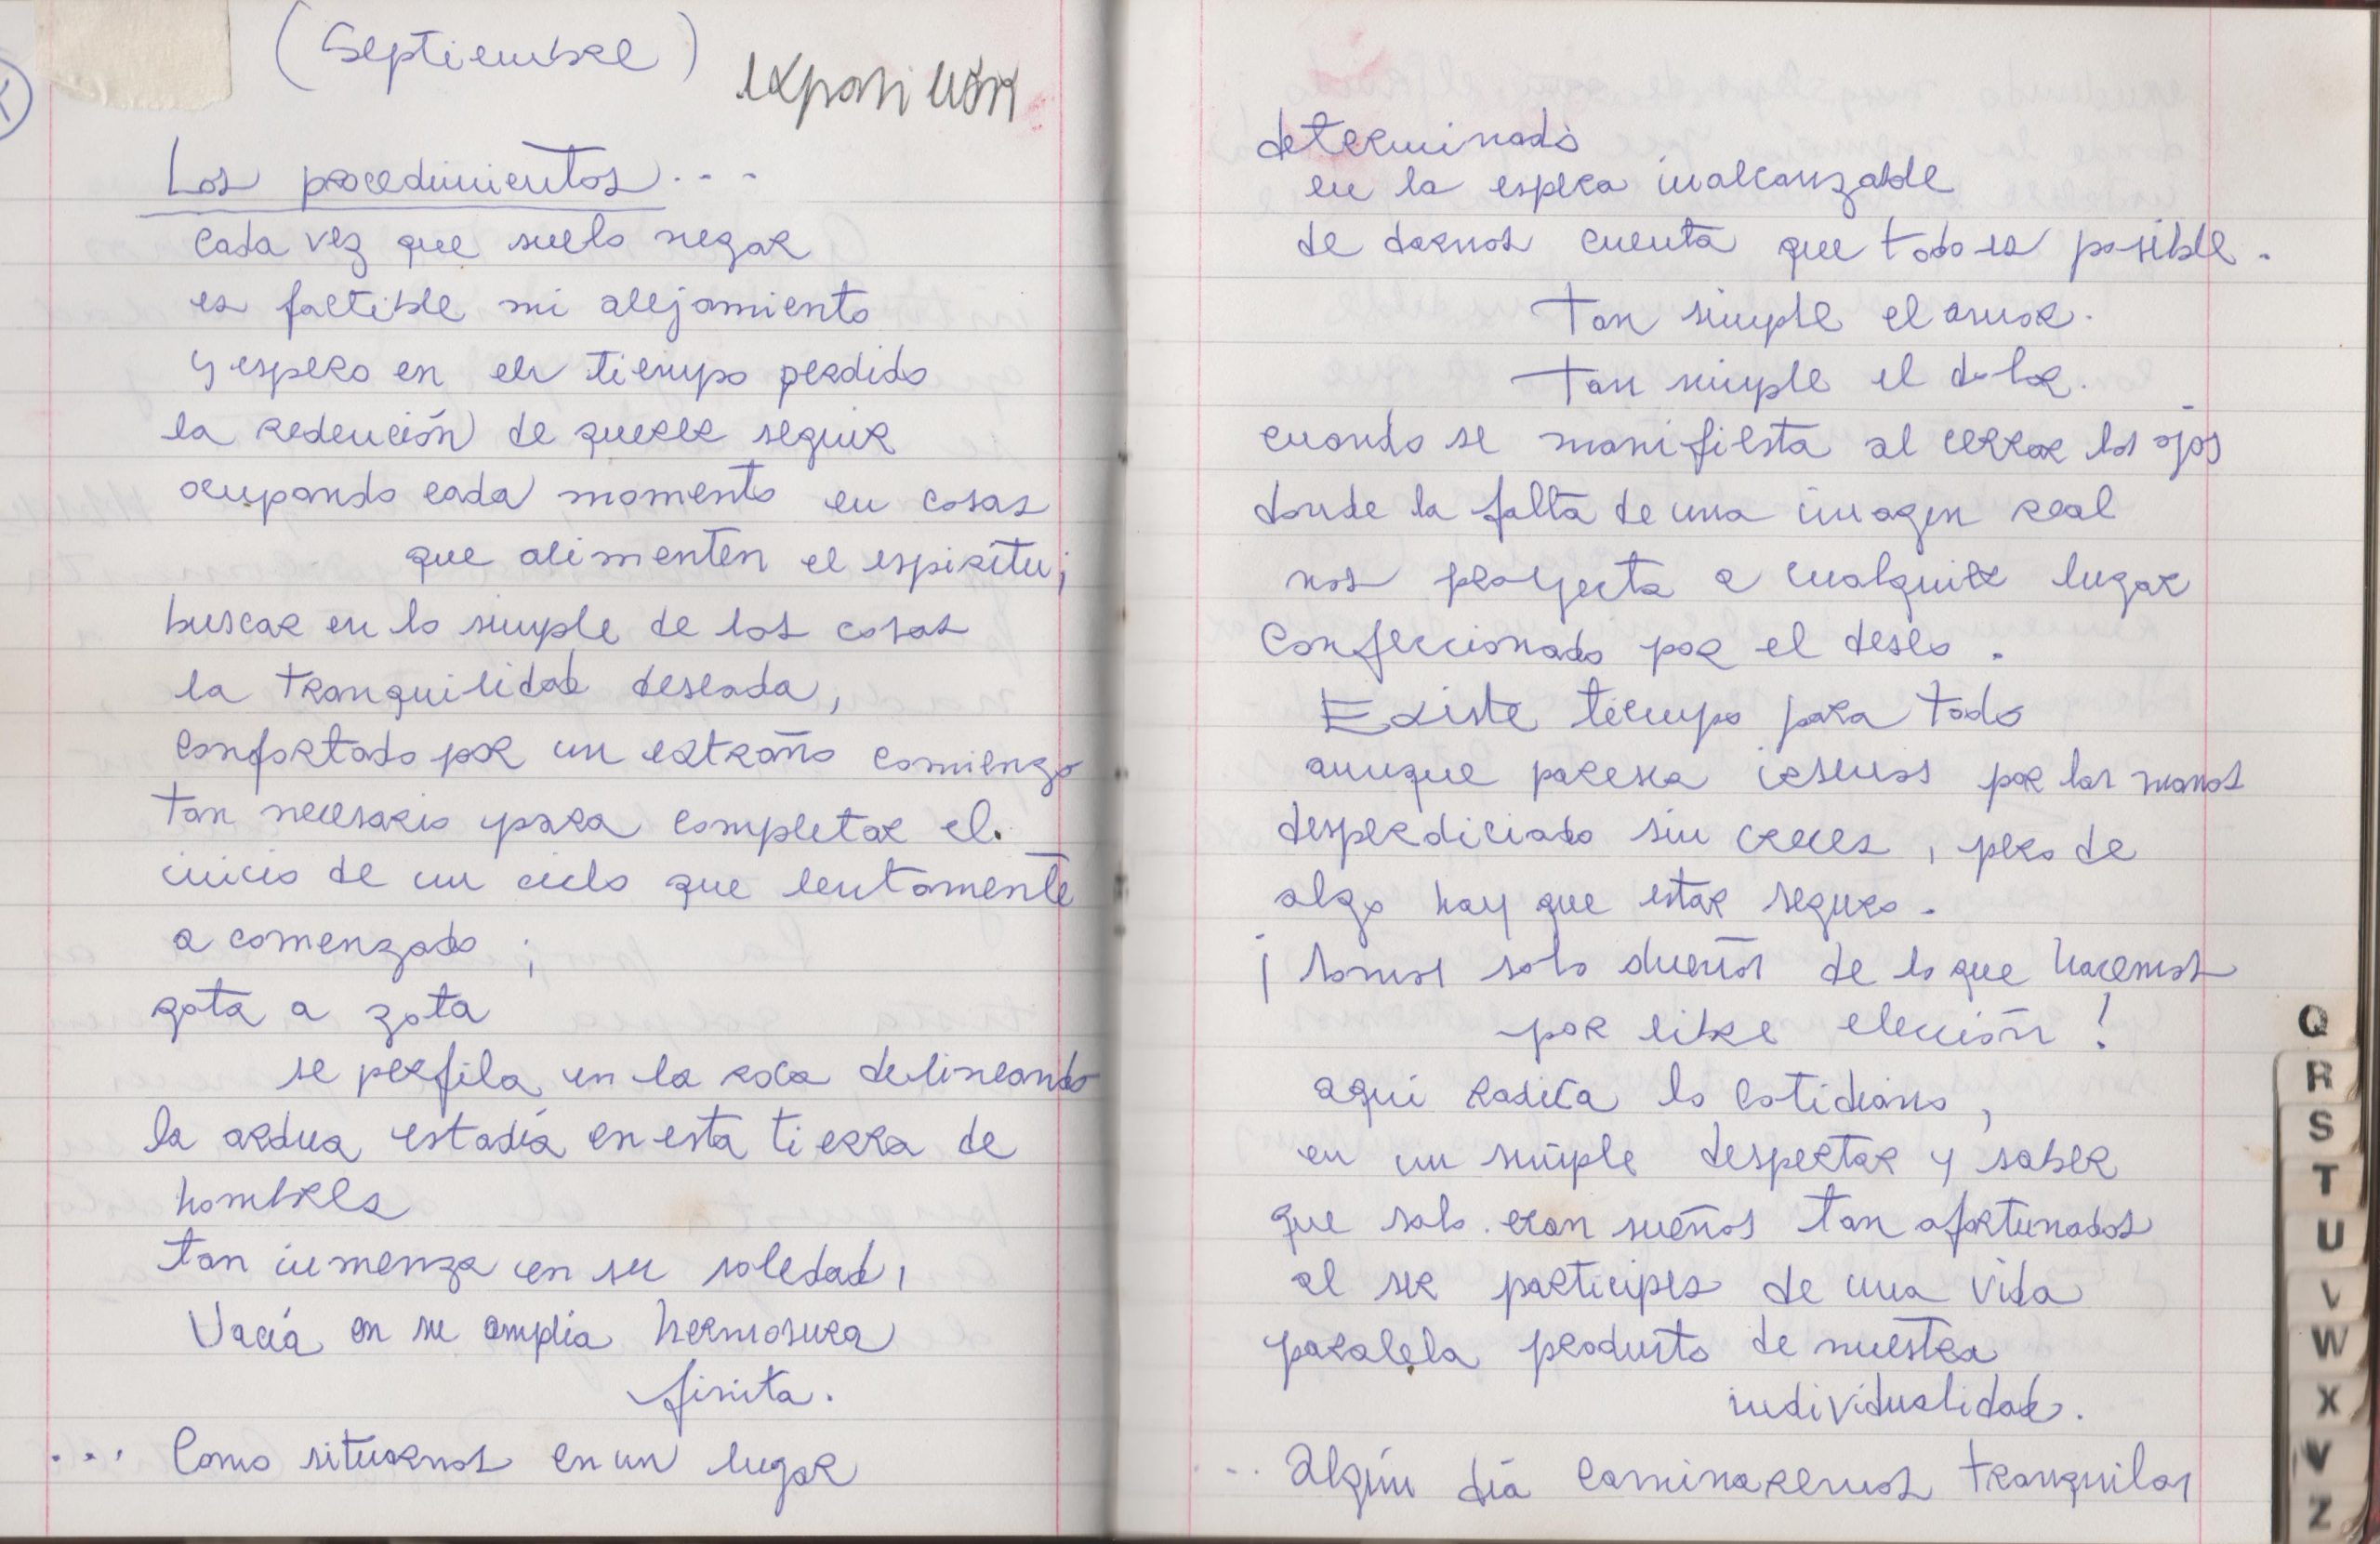 (Septiembre)
exposición
Los procedimientos...
cada vez que suelo negar
es factible mi alejamiento
y espero en el tiempo perdido
la redención de querer seguir
ocupando cada momento en cosas
que alimenten el espiritu;
buscar en lo simple de las cosas
la tranquilidad deseada,
confortado por un extraño comienzo
tan necesario para completar el.
inicio de un ciclo que lentamente
a comenzado ;
gota a gota
se perfila en la roca delineando
la ardua estadía en esta tierra de
hombres
tan inmenza en su soledad,
Vacía en su amplia hermosura
finita.
... Como situarnos en un lugar
determinado
en la espera inalcanzable
de darnos cuenta que todo es posible.
Tan simple el amor.
Tan simple el dolor.
cuando se manifiesta al cerrar los ojos
donde la falta de una imagen real
nos proyecta a cualquier lugar
confeccionado por el deseo.
Existe tiempo para todo
aunque paresca irsenos por las manos
desperdiciado sin creces, pero de
algo hay que estar seguro.
¡Somos solo dueños de lo que hacemos
por libre elección!
aquí radica lo cotidiano,
en un simple despertar y saber
que solo eran sueños tan afortunados
al ser participes de una vida
paralela producto de nuestra
individualidad.
... Algún día caminaremos tranquilos
Q
R
S
T
U
V
W
X
Y
Z